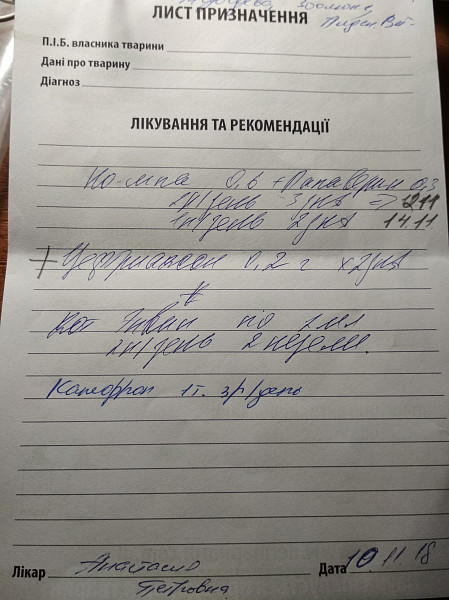 ЛИСТ ПРИЗНАЧЕННЯ
П.І.Б. власника тварини
Дані про тварину
Діагноз
ЛІКУВАННЯ ТА РЕКОМЕНДАЦІЇ
Но-шпа 0,6 + Папаверин 0,3
2р/день 3 дня => 12.11
1р/день 2 дня 14.11
+ Цефтриаксон 0,2 г х 2 дня
Кот Эрвин по 2 мл
2р/день 2 недели.
Канефрон 1т. 3р/день
Лікар Анастасія Дата 10.11.18
Петровна